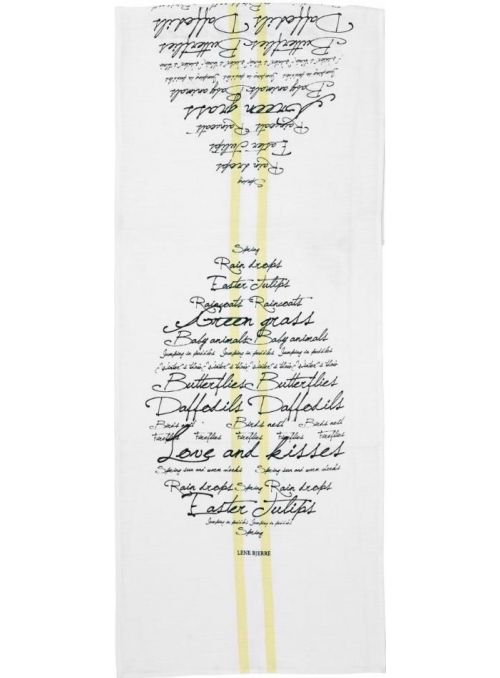 Daffodils Daffodils
Butterflies Butterflies
Jumping in puddles Jumping in puddles
Baby animals Baby animals
Green grass
Raincoats Raincoats
Easter Tulips
Rain drops
Spring
Spring
Rain drops
Easter Tulips
Raincoats Raincoats
Green grass
Baby animals Baby animals
Jumping in puddles Jumping in puddles
Butterflies Butterflies
Daffodils Daffodils
Birds nest Birds nest Birds nest
Fireflies Fireflies Fireflies Fireflies
Love and kisses
Spring sun and warm Spring sun and warm
Rain drops Spring Rain drops
Easter Tulips
Jumping in puddles Jumping in puddles
Spring
LENE BJERRE